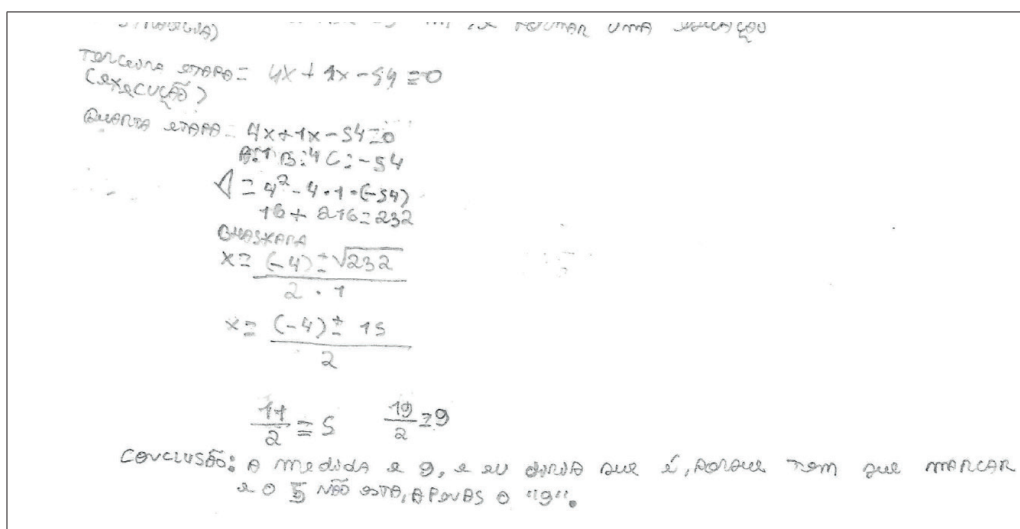 UMA
TERCEIRA ETAPA= 4X+1X-54=0
(EXECUÇÃO)
QUARTA ETAPA= 4X+1X-54=0
A:1 B:4 C:-54
Δ=4²-4·1·(-54)
16+216=232
BHASKARA
X= (-4)±√232
2·1
X= (-4)± 15
2
11/2 = 5 19/2=9
CONCLUSÃO: A MEDIDA É 9, E EU DIRIA QUE É, PORQUE TEM QUE MARCAR
E O 5 NÃO ESTA, APENAS O "9".